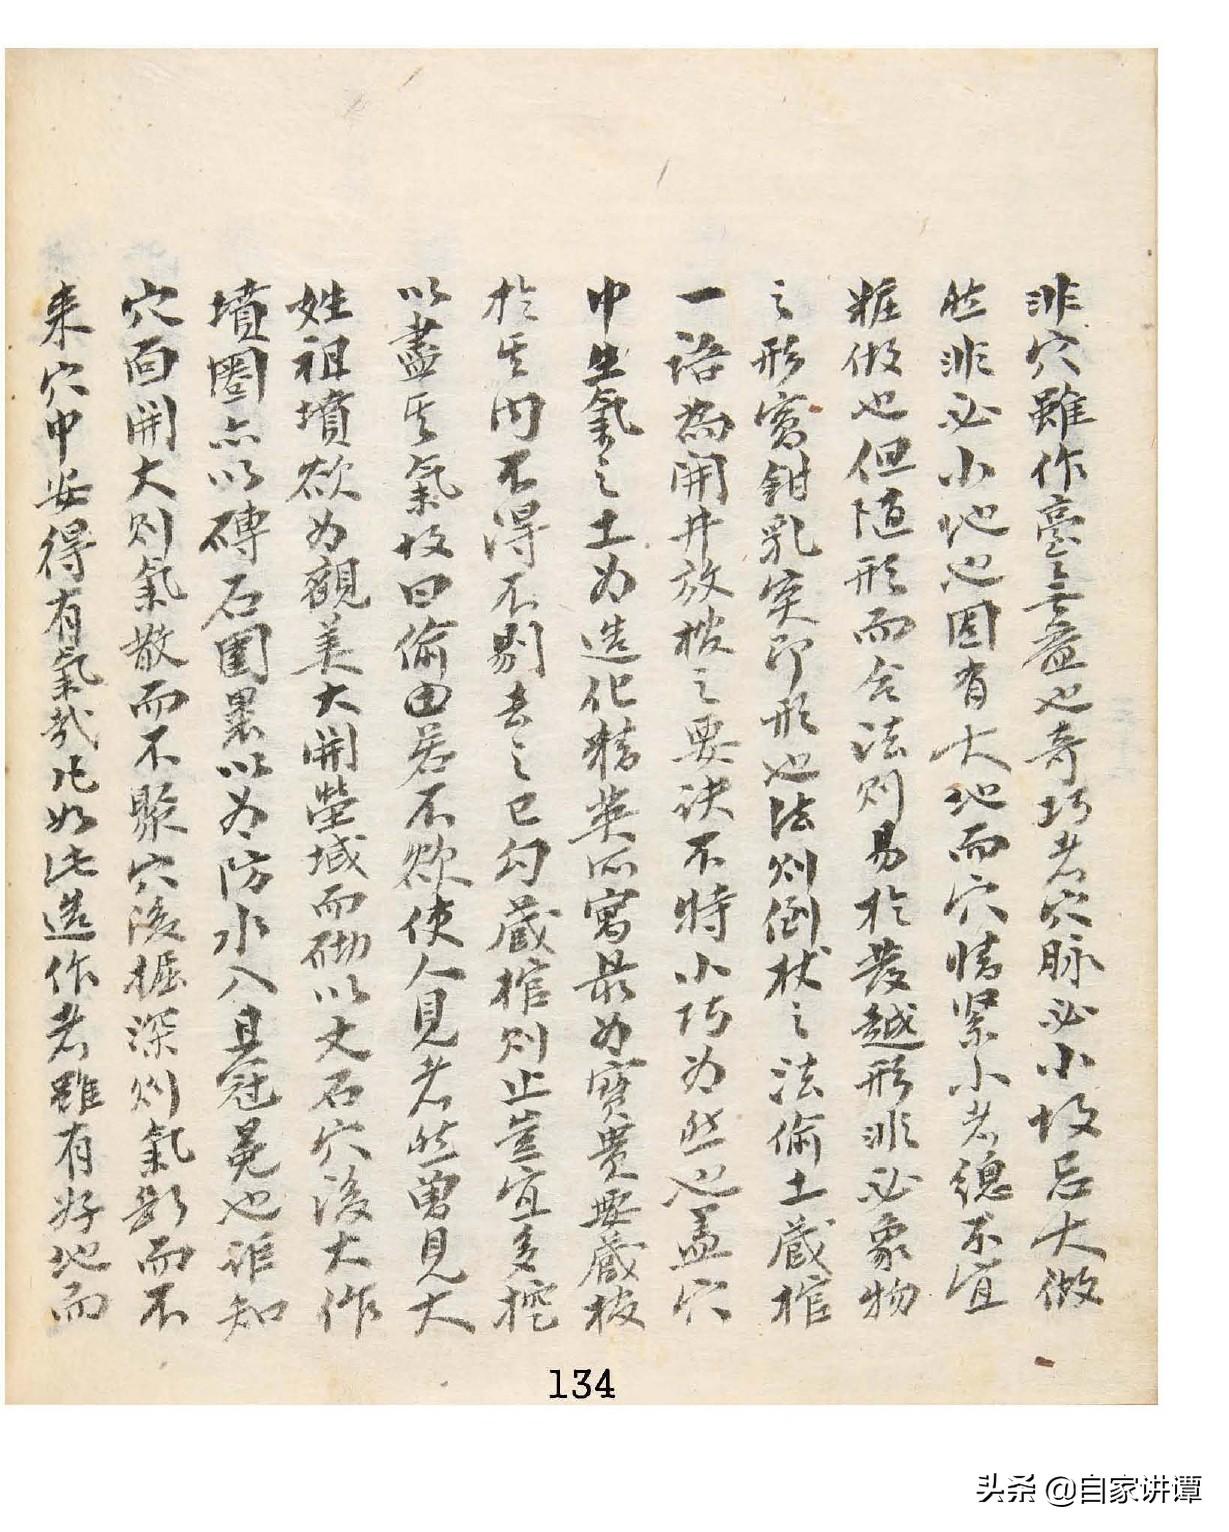 非穴雖作臺之無益也奇巧者穴脉必小故忌大做
然非必小地也固有大地而穴情紧小者總不宜
粧做也但随形而合法则易於發越形非必象物
之形窝鉗乳突即形也法则倒杖之法偷土藏棺
一语為開井放棺之要诀不特小巧为然也盖穴
中生氣之土为造化精英所寓最为寳貴要藏板
於其内不得不剔去之已勾藏棺则止豈宜多挖
以盡其氣故曰偷由若不欲使人見者然曽見大
姓祖墳欲为觀美大開塋域而砌以文石穴後大作
墳圈亦以磚石圍裹以为防水入且冠冕也詎知
穴面開大则氣散而不聚穴後掘深则氣断而不
来穴中安得有氣哉凡如此造作者雖有好地而
134
头杀 @自家讲谭